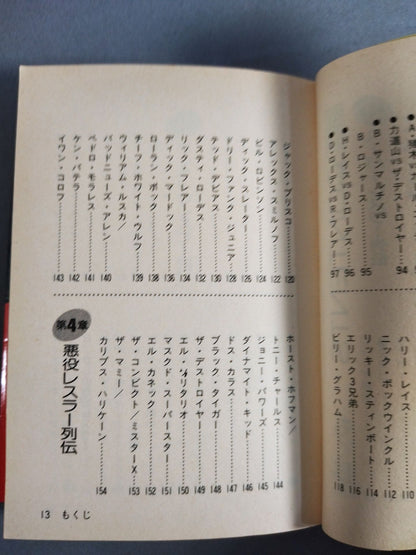 力道山vsザ・デストロイヤー……94
●B・サンマルチノvs
B・ロジャース……95
●H・レイスvsD・ローデス……96
●D・ローデスvsR・フレアー……97
ハリー・レイス……110
ニック・ボックウインクル……112
リッキー・スティンボート……114
エリック3兄弟……116
ビリー・グラハム……118
ジャック・ブリスコ……120
アレックス・スミルノフ……122
ビル・ロビンソン……124
ディック・スレーター……126
ドリー・ファンク・ジュニア……128
テッド・デビアス……130
ダスティ・ローデス……132
リック・フレアー……134
ディック・マードック……136
ローラン・ボック……138
チーフ・ホワイト・ウルフ……139
ウィリアム・ルスカ／
バッドニューズ・アレン……140
ペドロ・モラレス……141
ケン・パテラ……142
イワン・コロフ……143
ホースト・ホフマン／
トニー・チャールス……144
ジョニー・パワーズ……145
ダイナマイト・キッド……146
ドス・カラス……147
ブラック・タイガー……148
ザ・デストロイヤー……149
エル・ソリタリオ……150
マスクド・スーパースター……151
エル・カネック／……152
ザ・コンビクト／ミスターX……153
ザ・マミー／
カリプス・ハリケーン……154
第4章 悪役レスラー列伝
13 もくじ